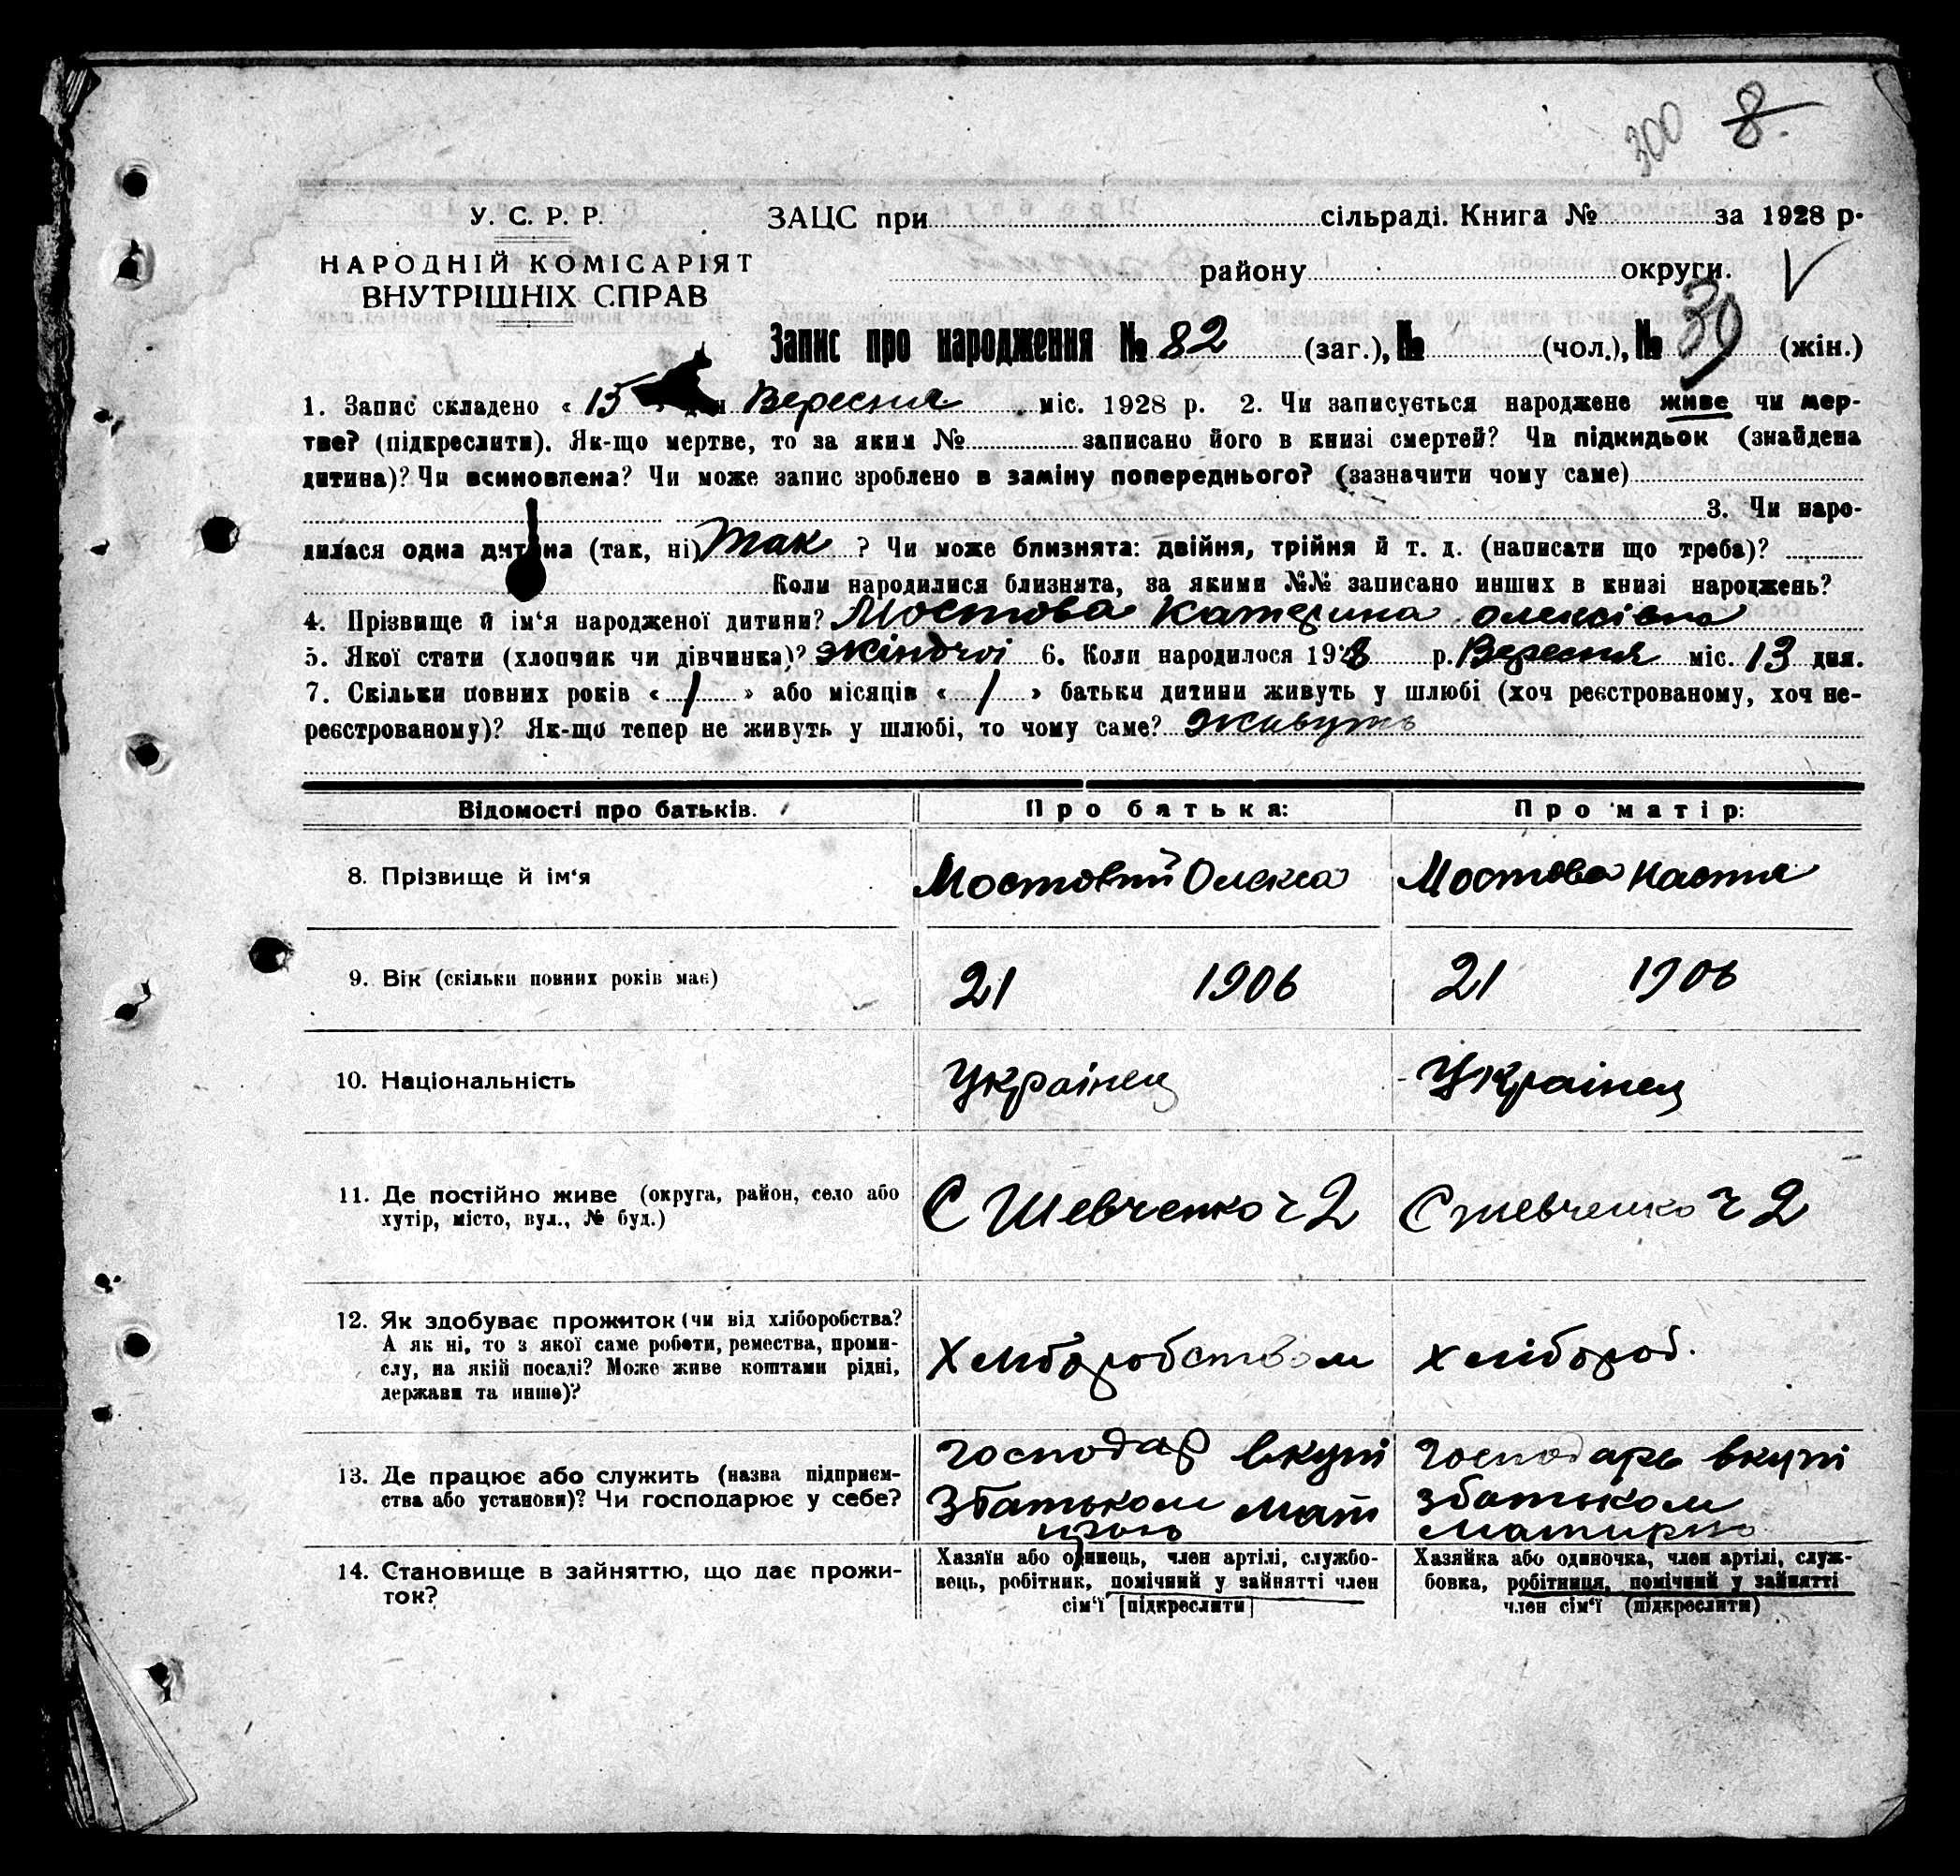 300 8.
У. С. Р. Р.
ЗАЦС при сільраді. Книга № за 1928 р.
НАРОДНІЙ КОМІСАРІЯТ
ВНУТРІШНІХ СПРАВ
району округи.
Запис про народження № 82 (заг.), № (чол.), № 39 (жін.)
1. Запис складено « 15 » дня Вересня міс. 1928 р. 2. Чи записується народжене живе чи мер-
тве? (підкреслити). Як-що мертве, то за яким № записано його в книзі смертей? Чи підкидьок (знайдена
дитина)? Чи всиновлена? Чи може запис зроблено в заміну попереднього? (зазначити чому саме)
3. Чи наро-
дилася одна дитина (так, ні) Так ? Чи може близнята: двійня, трійня й т. д. (написати що треба)?
Коли народилися близнята, за якими №№ записано инших в книзі народжень?
4. Прізвище й ім‘я народженої дитини? Мостова Катерина Олексівна
5. Якої стати (хлопчик чи дівчинка)? жіночоі 6. Коли народилося 1928 р. Вересня міс. 13 дня.
7. Скільки повних років « / » або місяців « / » батьки дитини живуть у шлюбі (хоч реєстрованому, хоч не-
реєстрованому)? Як-що тепер не живуть у шлюбі, то чому саме? Живуть
Відомості про батьків. Про батька: Про матір:
8. Прізвище й ім‘я Мостовий Олекса Мостова Настя
9. Вік (скільки повних років має) 21 1906 21 1906
10. Національність Украінец Украінец
11. Де постійно живе (округа, район, село або
хутір, місто, вул., № буд.)
С Шевченко ч 2 С Шевченко ч 2
12. Як здобуває прожиток (чи від хліборобства?
А як ні, то з якої саме роботи, ремества, проми-
слу, на якій посаді? Може живе коштами рідні,
держави та инше)?
Хліборобством хлібороб.
13. Де працює або служить (назва підприєм-
ства або установи)? Чи господарює у себе?
господар вкупі
Збатьком мати
рью
господарь вкупі
збатьком
матирью
14. Становище в зайняттю, що дає прожи-
ток?
Хазяїн або одинець, член артілі, службо-
вець, робітник, помічний у зайнятті член
сім‘ї [підкреслити]
Хазяйка або одиночка, член артілі, служ-
бовка, робітниця, помічний у зайнятті
член сім‘ї (підкреслити)